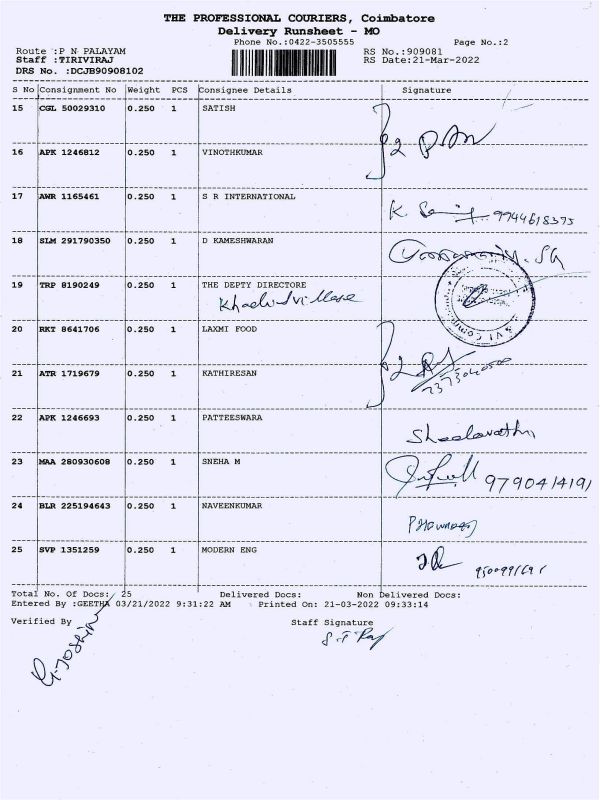 THE PROFESSIONAL COURIERS, Coimbatore
Delivery Runsheet - MO
Phone No.:0422-3505555 Page No.:2
Route :P N PALAYAM RS No.:909081
Staff :TIRIVIRAJ RS Date:21-Mar-2022
DRS No. :DCJB90908102
S No Consignment No Weight PCS Consignee Details Signature
15 CGL 50029310 0.250 1 SATISH
16 APK 1246812 0.250 1 VINOTHKUMAR
17 AWR 1165461 0.250 1 S R INTERNATIONAL
K. 9944618375
18 SLM 291790350 0.250 1 D KAMESHWARAN
19 TRP 8190249 0.250 1 THE DEPTY DIRECTORE
20 RKT 8641706 0.250 1 LAXMI FOOD
21 ATR 1719679 0.250 1 KATHIRESAN
22 APK 1246693 0.250 1 PATTEESWARA
23 MAA 280930608 0.250 1 SNEHA M
9790414191
24 BLR 225194643 0.250 1 NAVEENKUMAR
25 SVP 1351259 0.250 1 MODERN ENG
Total No. Of Docs: 25 Delivered Docs: Non Delivered Docs:
Entered By :GEETHA 03/21/2022 9:31:22 AM Printed On: 21-03-2022 09:33:14
Verified By Staff Signature